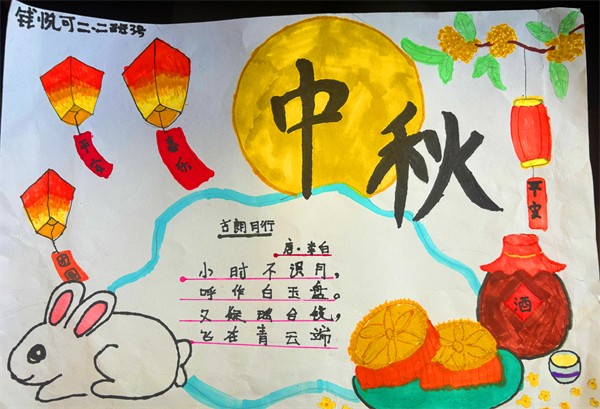 钱悦可二.二班3号
中秋
平安
喜乐
团圆
平安
古朗月行
唐·李白
小时不识月,
呼作白玉盘。
又疑瑶台镜,
飞在青云端
酒